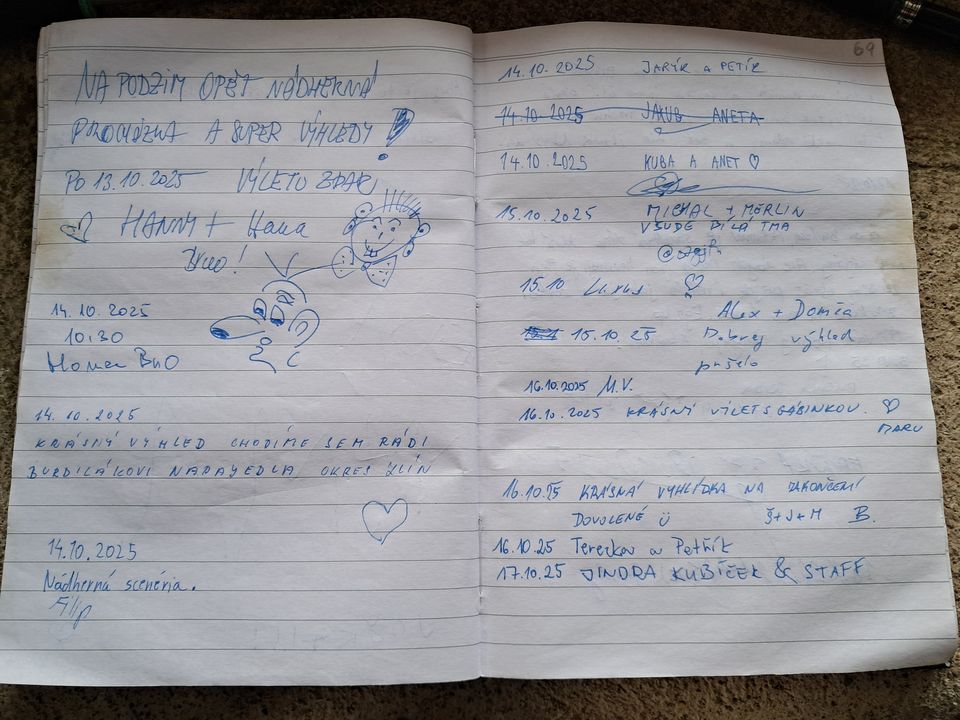 NA PODZIM OPĚT NÁDHERNÁ
PROCHÁZKA A SUPER VÝHLEDY!
PO 13.10.2025 VÝLETU ZDAR!
HANNY + Hana
Brno!
14.10.2025
10:30
14.10.2025
KRÁSNÝ VÝHLED CHODÍME SEM RÁDI
BURDILÁKOVI NAPAJEDLA OKRES ZLÍN
14.10.2025
Nádherná scenéria.
Filip
69
14.10.2025 JARÝK a PETÍK
14.10.2025 JAKUB ANETA
14.10.2025 KUBA A ANET ♡
15.10.2025 MICHAL + MERLIN
VŠUDE BÍLÁ TMA
15.10
Alex + Domča
15.10.25 Dobrej výhled
pršelo
16.10.2025 M.V.
16.10.2025 KRÁSNÝ VÝLET S GÁBINKOU. ♡
MARU
16.10.25 KRÁSNÁ VYHLÍDKA NA ZAKONČENÍ
DOVOLENÉ Ü Š+J+M B.
16.10.25 Terezkou a Petřík
17.10.25 JINDRA KUBÍČEK & STAFF